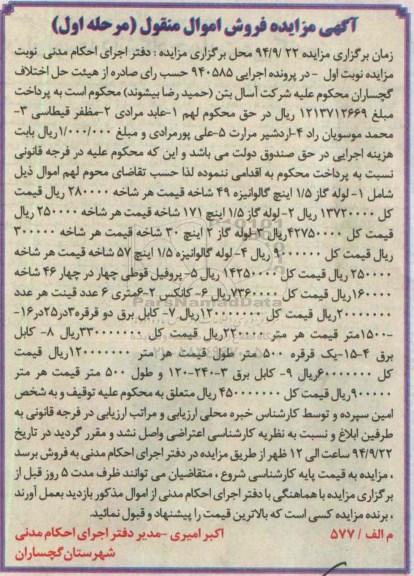 آگهی مزایده فروش اموال منقول (مرحله اول)
زمان برگزاری مزایده ۹۴/۹/۲۲ محل برگزاری مزایده : دفتر اجرای احکام مدنی نوبت
مزایده نوبت اول - در پرونده اجرایی ۹۴۰۵۸۵ حسب رای صادره از هیئت حل اختلاف
گچساران محکوم علیه شرکت آسال بتن (حمید رضا بیشوند) محکوم است به پرداخت
مبلغ ۱۲۱۳۷۱۲۶۶۹ ریال در حق محکوم لهم ۱-عابد مرادی ۲-مظفر قیطاسی ۳-
محمد موسویان راد ۴-اردشیر مرارت ۵-علی پورمرادی و مبلغ ۱/۰۰۰/۰۰۰ ریال بابت
هزینه اجرایی در حق صندوق دولت می باشد و این که محکوم علیه در فرجه قانونی
نسبت به پرداخت محکوم به اقدامی ننموده لذا حسب تقاضای محوم لهم اموال ذیل
شامل ۱- لوله گاز ۱/۵ اینچ گالوانیزه ۴۹ شاخه قیمت هر شاخه ۲۸۰۰۰۰ ریال قیمت
کل ۱۳۷۲۰۰۰۰ ریال ۲- لوله گاز ۱/۵ اینچ ۱۷۱ شاخه قیمت هر شاخه ۲۵۰۰۰۰ ریال
قیمت کل ۴۲۷۵۰۰۰۰ ریال ۳-لوله گاز ۲ اینچ ۳۰ شاخه قیمت هر شاخه ۳۰۰۰۰۰
ریال قیمت کل ۹۰۰۰۰۰۰ ریال ۴- لوله گالوانیزه ۱/۵ اینچ ۵۷ شاخه قیمت هر شاخه
۲۵۰۰۰۰ ریال قیمت کل ۱۴۲۵۰۰۰۰ ریال ۵- پروفیل قوطی چهار در چهار ۴۶ شاخه
۱۶۰۰۰۰ ریال قیمت کل ۷۳۶۰۰۰۰ ریال ۶- کانکس ۲-۶متری ۶ عدد قینت هر عدد
۲۰۰۰۰۰۰۰ ریال قیمت کل ۱۲۰۰۰۰۰۰۰ ریال ۷- کابل برق دو قرقره ۳در۲۵در۱۶-
۱۵۰۰متر قیمت هر متر ۲۲۰۰۰۰ریال قیمت کل ۳۳۰۰۰۰۰۰۰ریال ۸- کابل
برق ۴-۱۵-یک قرقره ۵۰۰ متر طول قیمت هر متر ۱۲۰۰۰۰ریال قیمت
کل ۶۰۰۰۰۰۰۰ریال ۹- کابل برق ۳-۲۴۰-۱۲۰ و طول ۵۰۰ متر قیمت هر متر
۹۰۰۰۰۰ریال قیمت کل ۴۵۰۰۰۰۰۰۰ ریال متعلق به محکوم علیه توقیف و به شخص
امین سپرده و توسط کارشناس خبره محلی ارزیابی و مراتب ارزیابی در فرجه قانونی به
طرفین ابلاغ و نسبت به نظریه کارشناسی اعتراضی واصل نشد و مقرر گردید در تاریخ
۹۴/۹/۲۲ ساعت الی ۱۲ ظهر از طریق مزایده در دفتر اجرای احکام مدنی به فروش برسد
، مزایده به قیمت پایه کارشناسی شروع ، متقاضیان می توانند ظرف مدت ۵ روز قبل از
برگزاری مزایده با هماهنگی با دفتر اجرای احکام مدنی از اموال مذکور بازدید بعمل آورند
، برنده مزایده کسی است که بالاترین قیمت را پیشنهاد و قبول نمائید.
م الف / ۵۷۷ اکبر امیری -مدیر دفتر اجرای احکام مدنی
شهرستان گچساران
ParsNamadData